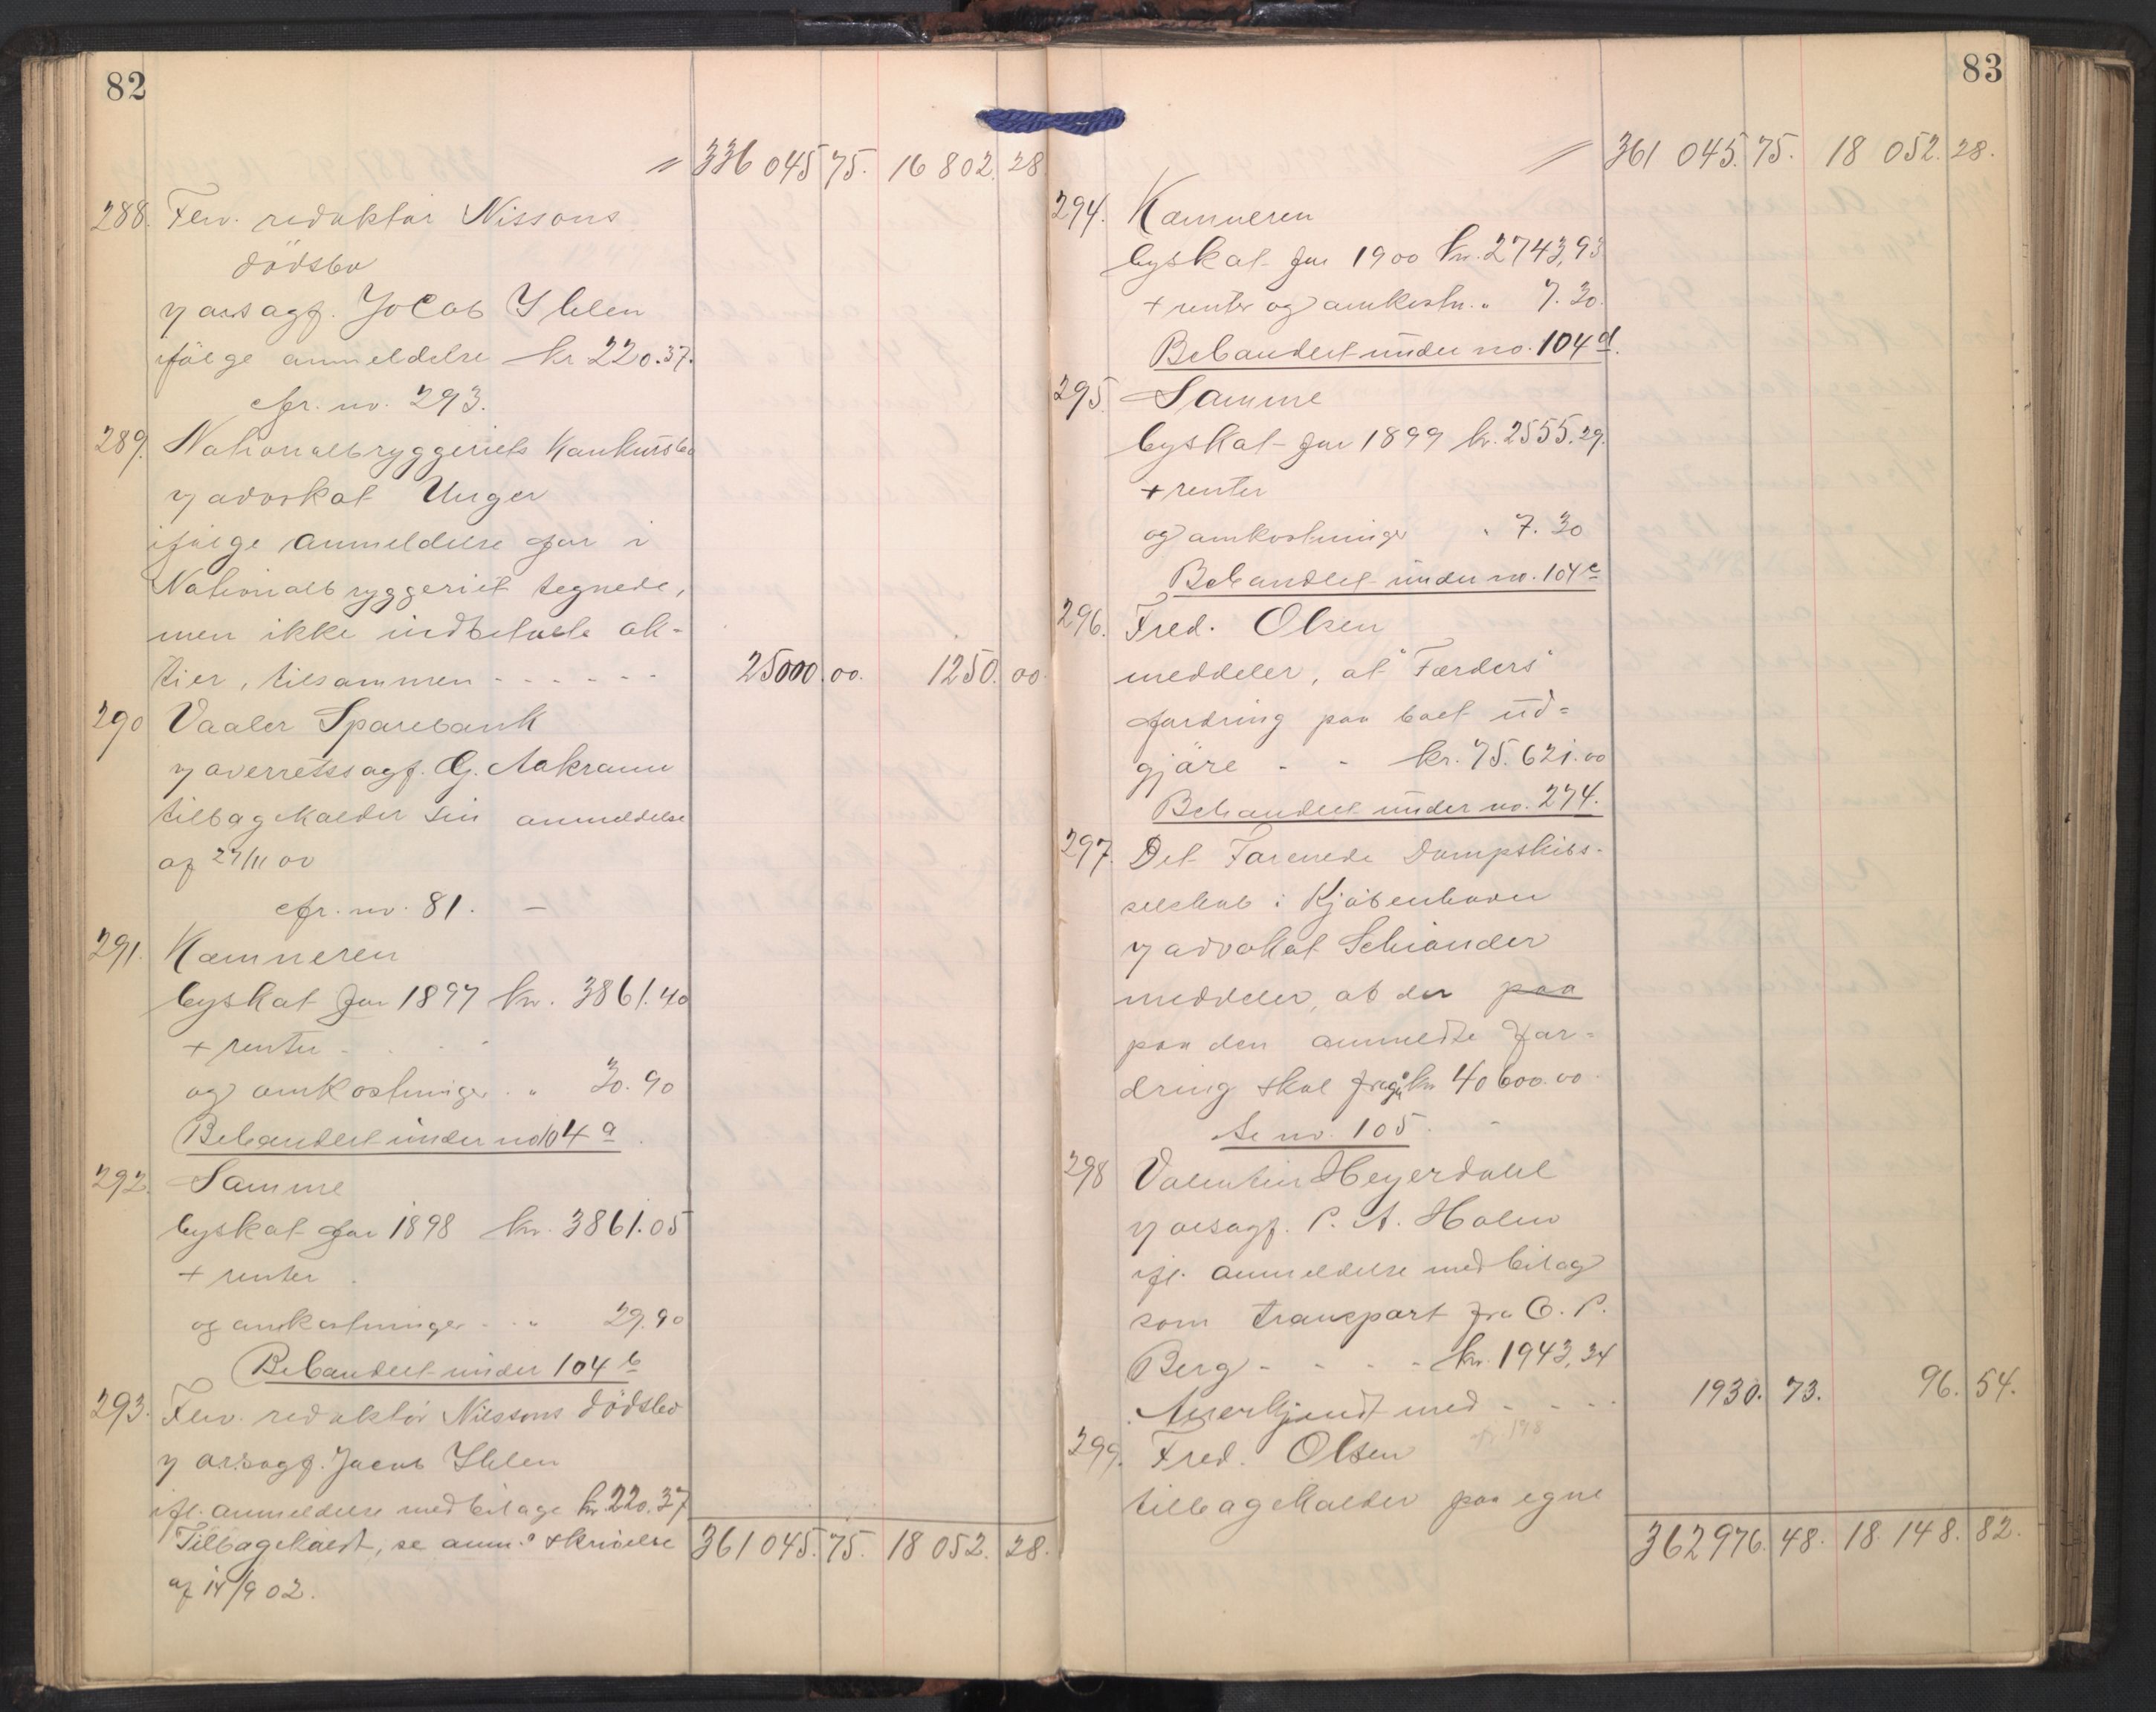 82
〃 336 045 75. 16 802. 28
288. Flv. redaktör Nissons
dödsbo
v/ ovsagf. Jocob Ihlen
ifölge anmeldelse kr 220.37.
cfr. no. 293.
289. Nationalbryggeriets Konkursbo
v/ advokat Unger
ifölge anmeldelse for i
Nationalbryggeriet tegnede,
men ikke indbetalte ak-
tier, tilsammen - - - - - - 25000.00. 1250.00
290 Vaaler Sparebank
v/ overretssagf. G. Aakrann
tilbagekalder sin anmeldelse
af 27/11 00
cfr. no. 81. —
291. Kæmneren
byskat for 1897 kr. 3861.40
+ renter - . . .
og omkostninger . " 30.90
Behandlet under no 104 a
292. Samme
byskat for 1898 kr. 3861.05
+ renter .
og omkostninger - . " 29.90
Behandlet under 104 b
293. Flv. redaktör Nilssons dödsbo
v/ orsagf. Jacob Ihlen
ifl. anmeldelse med bilage kr. 220.37
Tilbagekaldt, se anm.s skrivelse 361 045. 75. 18 052. 28.
af 14/9 02.
83
〃 361 045. 75. 18 052. 28.
294. Kæmneren
byskat for 1900 kr. 2743,93
+ renter og omkostn. " 7.30.
Behandlet under no. 104 d.
295. Samme
byskat for 1899 kr. 2555.29.
+ renter
og omkostninger " 7.30
Behandlet under no. 104 c
296. Fred. Olsen
meddeler, at "Færders"
fordring paa boet ud=
gjöre - - kr. 75.621.00
Behandlet under no. 274.
297. Det Forenede Dampskibs-
selskab i Kjöbenhavn
v/ advokat Schiander
meddeler, at der paa
paa den anmeldte for=
dring skal fragå kr 40 600.00.
Se no. 105.
298 Valentin Heyerdahl
v/ orsagf. P. A. Holm
ifl. anmeldelse med bilag
som transport fra O. P.
Berg - - - - kr. 1943,34
Anerkjendt med - - - - 1930. 73. 96. 54.
299. Fred. Olsen
tilbagekalder paa egne
362976. 48. 18. 148. 82.